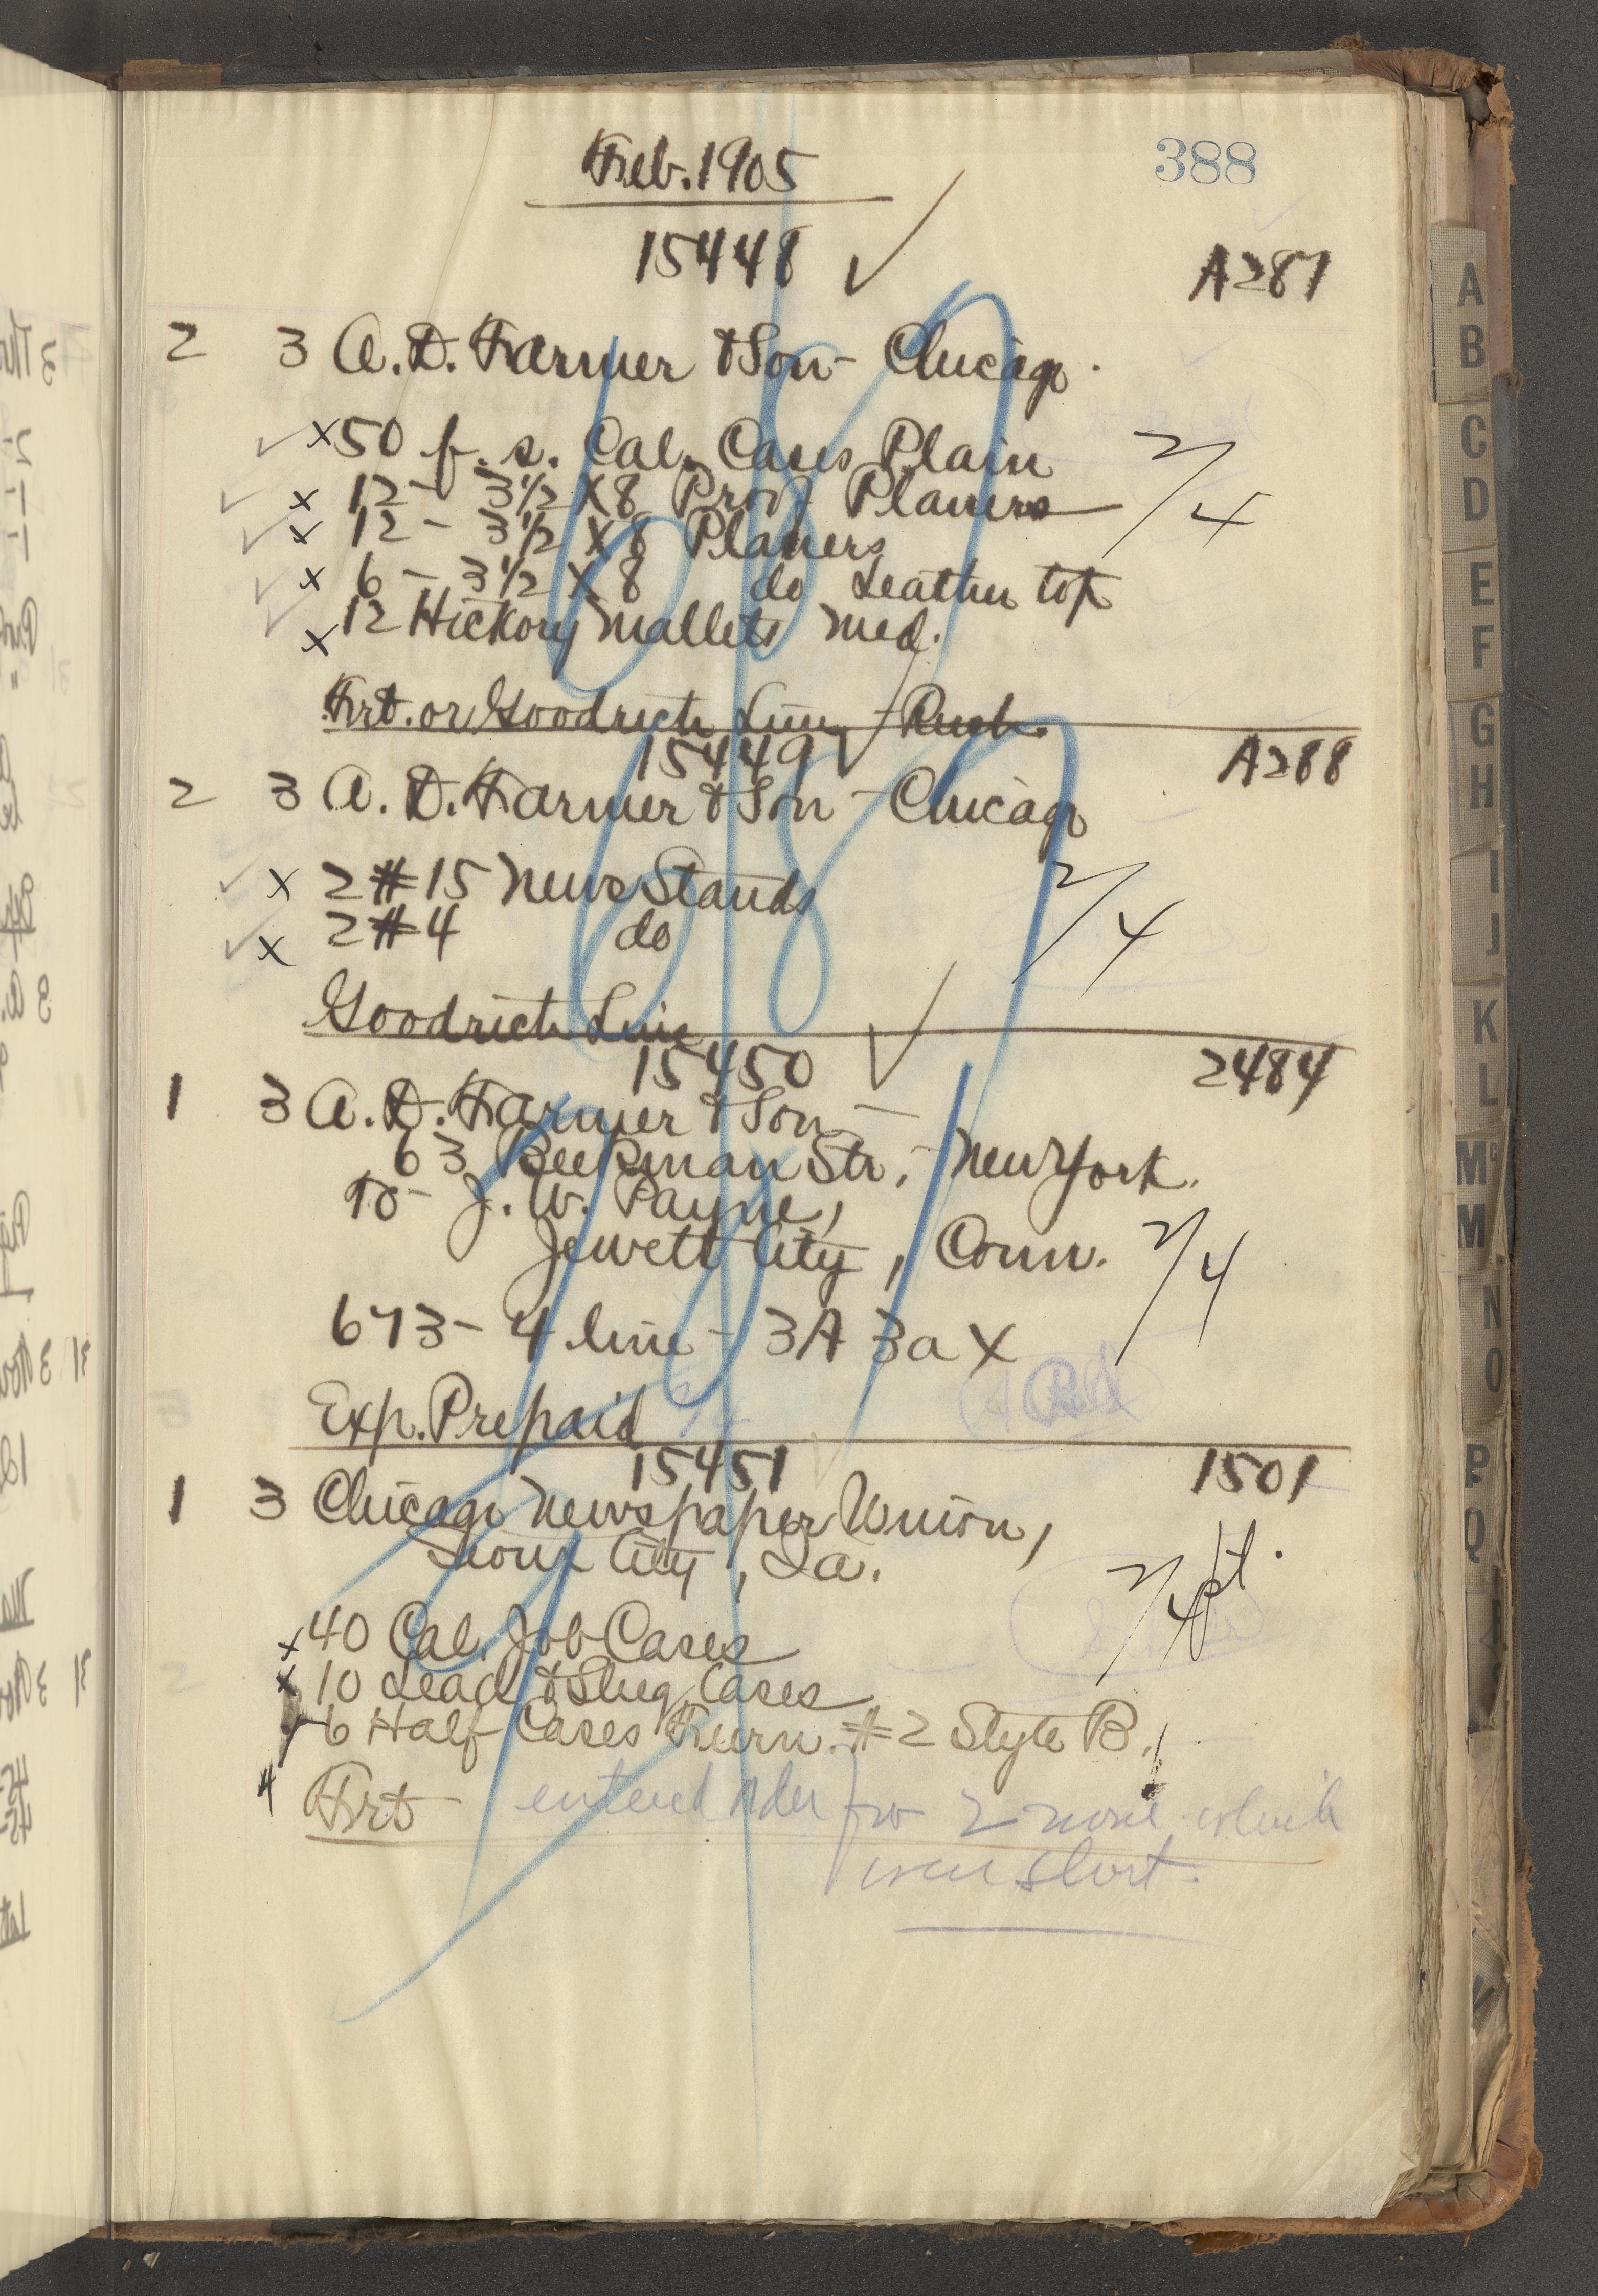 388
Feb. 1905
15448 ✓ A287
2 3 A. D. Farmer & Son - Chicago.
✓ x 50 f. s. Cal. Cases Plain 2/4
✓ x 12 - 3½ X 8 Proof Planers
✓ x 12 - 3½ X 8 Planers
✓ x 6 - 3½ X 8 do Leather top
✓ x 12 Hickory Mallets Med.
Frt. or Goodrich Line - Rush.
15449 ✓ A288
2 3 A. D. Farmer & Son - Chicago
✓ x 2 #15 News Stands 2/4
✓ x 2 #4 do
Goodrich Line
15450 ✓ 2484
1 3 A. D. Farmer & Son -
63 Beekman Str, - New York.
To - J. W. Payne,
Jewett City, Conn. 2/4
673 - 4 line - 3A 3a X
Exp. Prepaid
15451 1501
1 3 Chicago Newspaper Union,
Sioux City, Ia.
2/4 pt.
x 40 Cal. Job Cases
x 10 Lead & Slug Cases
6 Half Cases Furn. #2 Style B.
4 Frt - entered order for 2 more which
were short.
A
B
C
D
E
F
G
H
I
J
K
L
Mc
M
N
O
P
Q